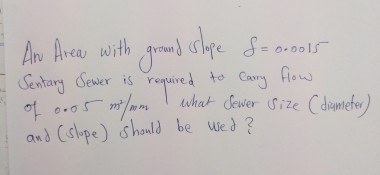 An Area with ground slope S = 0.0015
Sentary Sewer is required to carry flow
of 0.05 m³/mm what Sewer Size (diameter)
and (slope) should be used?